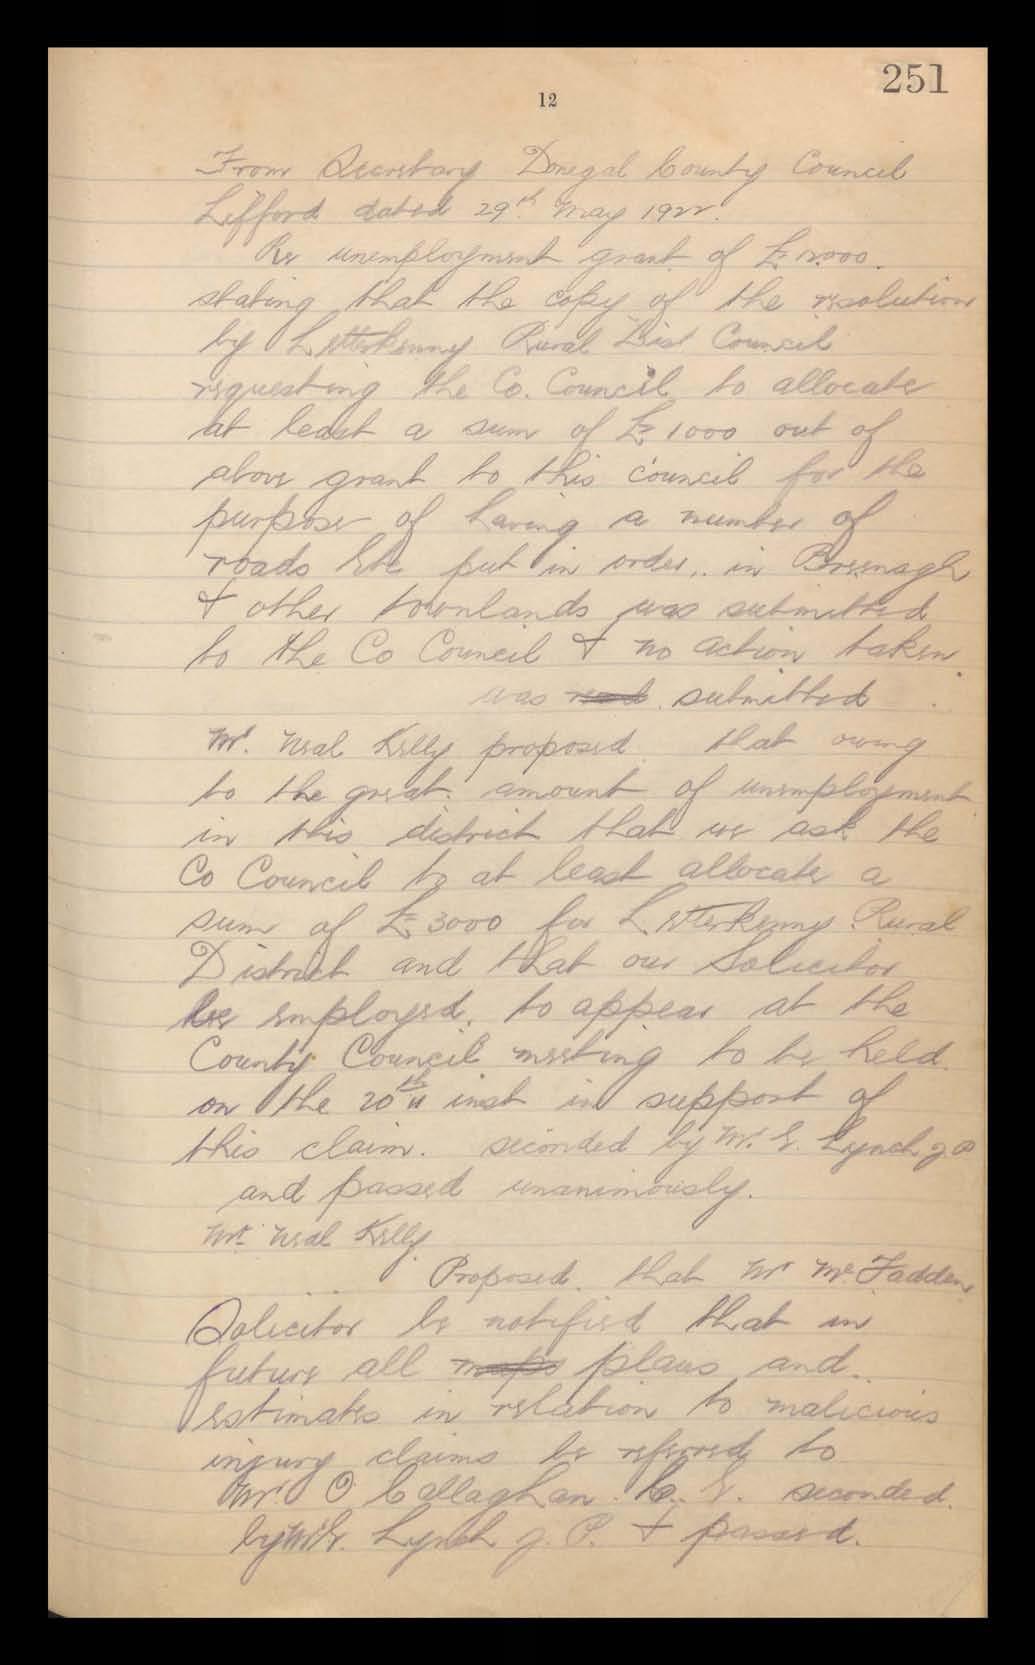 251
12
From Secretary Donegal County Council
Lifford dated 29th May 1922.
Re unemployment grant of £12000.
stating that the copy of the resolution
by Letterkenny Rural Dist Council
requesting the Co. Council to allocate
at least a sum of £1000 out of
above grant to this council for the
purpose of having a number of
roads Etc put in order, in Breenagh
& other townlands was submitted
to the Co Council & no action taken.
was read submitted
Mr. Neal Kelly proposed that owing
to the great amount of unemployment
in this district that we ask the
Co Council to at least allocate a
sum of £3000 for Letterkenny Rural
District and that our Solicitor
be employed. to appear at the
County Council meeting to be held
on the 20th inst in support of
this claim. seconded by Mr. E. Lynch J P
and passed unanimously.
Mr. Neal Kelly
Proposed. that Mr Mc Fadden
Solicitor be notified that in
future all maps plans and
estimates in relation to malicious
injury claims be referred to
Mr O Callaghan C. E. seconded.
by Mr E. Lynch J. P. & passed.